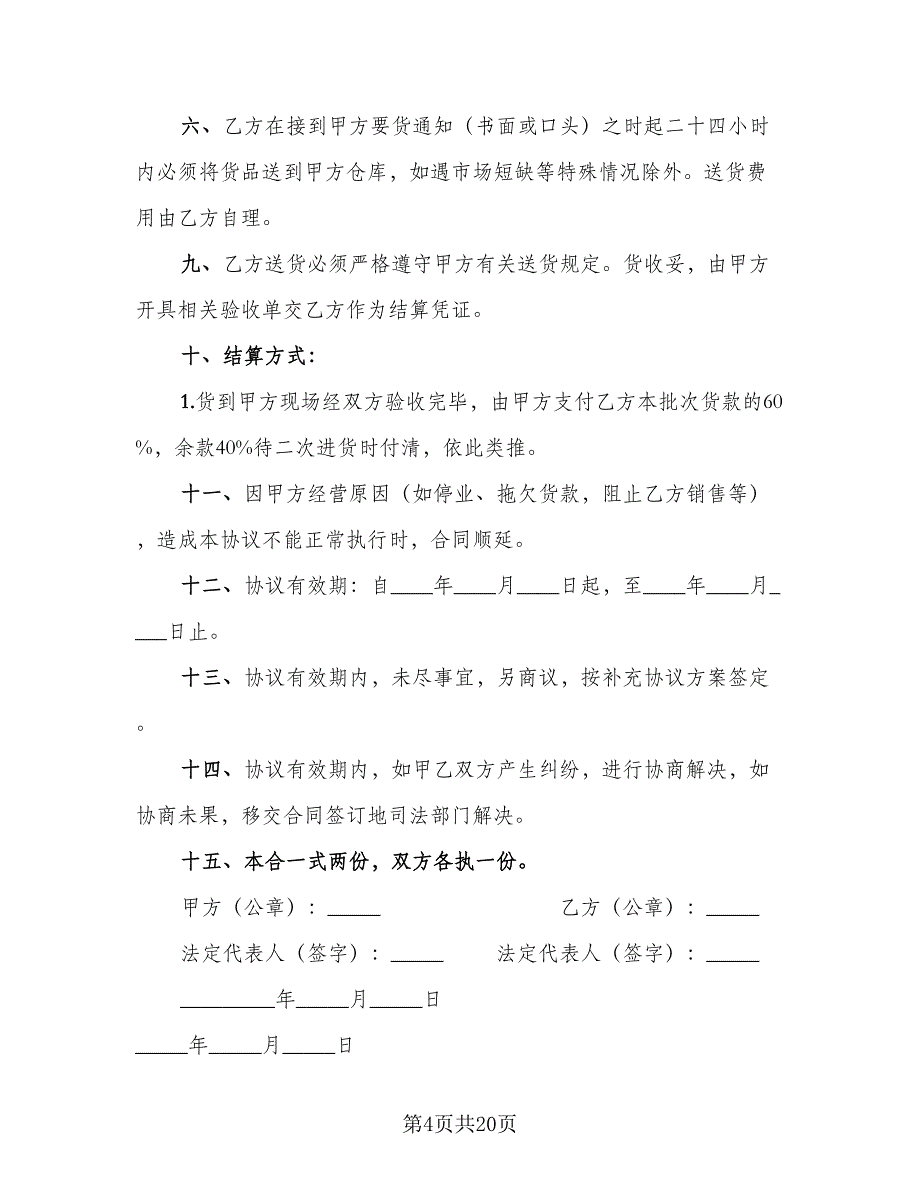 六、乙方在接到甲方要货通知（书面或口头）之时起二十四小时
内必须将货品送到甲方仓库，如遇市场短缺等特殊情况除外。送货费
用由乙方自理。
九、乙方送货必须严格遵守甲方有关送货规定。货收妥，由甲方
开具相关验收单交乙方作为结算凭证。
十、结算方式：
1.货到甲方现场经双方验收完毕，由甲方支付乙方本批次货款的60
%，余款40%待二次进货时付清，依此类推。
十一、因甲方经营原因（如停业、拖欠货款，阻止乙方销售等）
，造成本协议不能正常执行时，合同顺延。
十二、协议有效期：自____年____月____日起，至____年____月_
___日止。
十三、协议有效期内，未尽事宜，另商议，按补充协议方案签定
。
十四、协议有效期内，如甲乙双方产生纠纷，进行协商解决，如
协商未果，移交合同签订地司法部门解决。
十五、本合一式两份，双方各执一份。
甲方（公章）：_____ 乙方（公章）：_____
法定代表人（签字）：_____ 法定代表人（签字）：_____
_________年_____月_____日
_____年_____月_____日
第4页共20页